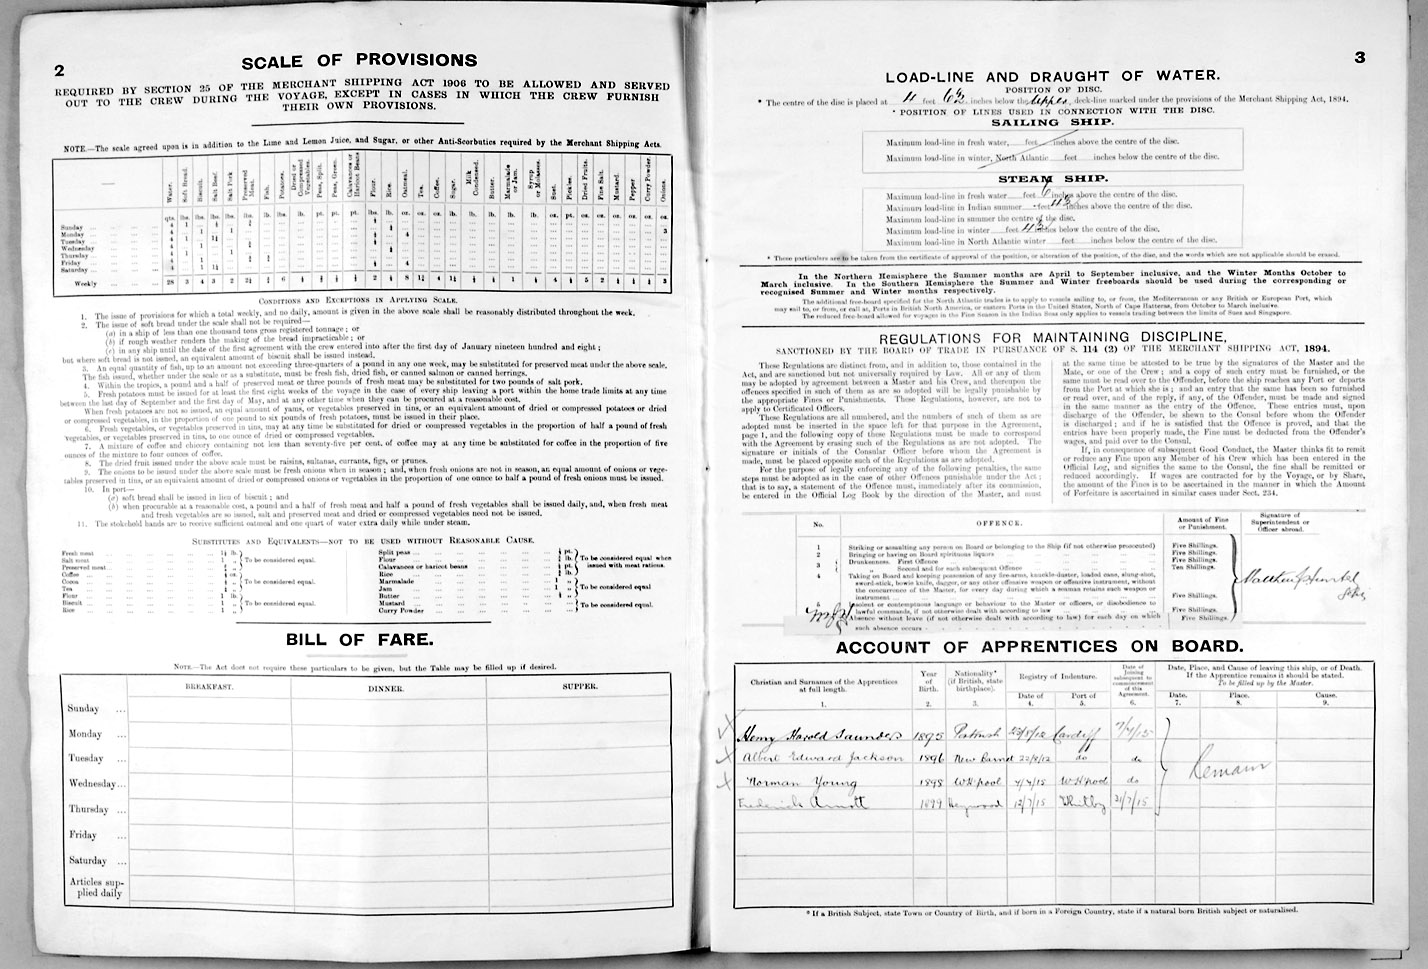 2
SCALE OF PROVISIONS
REQUIRED BY SECTION 25 OF THE MERCHANT SHIPPING ACT 1906 TO BE ALLOWED AND SERVED
OUT TO THE CREW DURING THE VOYAGE, EXCEPT IN CASES IN WHICH THE CREW FURNISH
THEIR OWN PROVISIONS.
NOTE.—The scale agreed upon is in addition to the Lime and Lemon Juice, and Sugar, or other Anti-Scorbutics required by the Merchant Shipping Acts.
Water. Soft Bread. Biscuit. Salt Beef. Salt Pork Preserved Meat. Fish. Potatoes. Dried or Compressed Vegetables. Peas, Split. Peas, Green. Calavances or Haricot Beans Flour. Rice. Oatmeal. Tea. Coffee. Sugar. Milk Condensed. Butter. Marmalade or Jam. Syrup or Molasses. Suet. Pickles. Dried Fruits. Fine Salt. Mustard. Pepper Curry Powder. Onions.
Sunday
Monday
Tuesday
Wednesday
Thursday
Friday
Saturday
Weekly
CONDITIONS AND EXCEPTIONS IN APPLYING SCALE.
1. The issue of provisions for which a total weekly, and no daily, amount is given in the above scale shall be reasonably distributed throughout the week.
2. The issue of soft bread under the scale shall not be required—
(a) in a ship of less than one thousand tons gross registered tonnage; or
(b) if rough weather renders the making of the bread impracticable; or
(c) in any ship until the date of the first agreement with the crew entered into after the first day of January nineteen hundred and eight;
but where soft bread is not issued, an equivalent amount of biscuit shall be issued instead.
3. An equal quantity of fish, up to an amount not exceeding three-quarters of a pound in any one week, may be substituted for preserved meat under the above scale.
The fish issued, whether under the scale or as a substitute, must be fresh fish, dried fish, or canned salmon or canned herrings.
4. Within the tropics, a pound and a half of preserved meat or three pounds of fresh meat may be substituted for two pounds of salt pork.
5. Fresh potatoes must be issued for at least the first eight weeks of the voyage in the case of every ship leaving a port within the home trade limits at any time
between the last day of September and the first day of May, and at any other time when they can be procured at a reasonable cost.
When fresh potatoes are not so issued, an equal amount of yams, or vegetables preserved in tins, or an equivalent amount of dried or compressed potatoes or dried
or compressed vegetables, in the proportion of one pound to six pounds of fresh potatoes, must be issued in their place.
6. Fresh vegetables, or vegetables preserved in tins, may at any time be substituted for dried or compressed vegetables in the proportion of half a pound of fresh
vegetables, or vegetables preserved in tins, to one ounce of dried or compressed vegetables.
7. A mixture of coffee and chicory containing not less than seventy-five per cent. of coffee may at any time be substituted for coffee in the proportion of five
ounces of the mixture to four ounces of coffee.
8. The dried fruit issued under the above scale must be raisins, sultanas, currants, figs, or prunes.
9. The onions to be issued under the above scale must be fresh onions when in season; and, when fresh onions are not in season, an equal amount of onions or vege-
tables preserved in tins, or an equivalent amount of dried or compressed onions or vegetables in the proportion of one ounce to half a pound of fresh onions must be issued.
10. In port—
(a) soft bread shall be issued in lieu of biscuit; and
(b) when procurable at a reasonable cost, a pound and a half of fresh meat and half a pound of fresh vegetables shall be issued daily, and, when fresh meat
and fresh vegetables are so issued, salt and preserved meat and dried or compressed vegetables need not be issued.
11. The stokehold hands are to receive sufficient oatmeal and one quart of water extra daily while under steam.
SUBSTITUTES AND EQUIVALENTS—NOT TO BE USED WITHOUT REASONABLE CAUSE.
Fresh meat
Salt meat
Preserved meat
To be considered equal.
Coffee
Cocoa
Tea
To be considered equal.
Flour
Biscuit
Rice
To be considered equal.
Split peas
Flour
Calavances or haricot beans
Rice
To be considered equal when issued with meat rations.
Marmalade
Jam
Butter
To be considered equal
Mustard
Curry Powder
To be considered equal.
BILL OF FARE.
NOTE.—The Act does not require these particulars to be given, but the Table may be filled up if desired.
BREAKFAST. DINNER. SUPPER.
Sunday
Monday
Tuesday
Wednesday
Thursday
Friday
Saturday
Articles sup-
plied daily
3
LOAD-LINE AND DRAUGHT OF WATER.
POSITION OF DISC.
* The centre of the disc is placed at 11 feet 6½ inches below the upper deck-line marked under the provisions of the Merchant Shipping Act, 1894.
* POSITION OF LINES USED IN CONNECTION WITH THE DISC.
SAILING SHIP.
Maximum load-line in fresh water, feet inches above the centre of the disc.
Maximum load-line in winter, North Atlantic feet inches below the centre of the disc.
STEAM SHIP.
Maximum load-line in fresh water feet 6 inches above the centre of the disc.
Maximum load-line in Indian summer feet inches above the centre of the disc.
Maximum load-line in summer the centre of the disc.
Maximum load-line in winter feet inches below the centre of the disc.
Maximum load-line in North Atlantic winter feet inches below the centre of the disc.
* These particulars are to be taken from the certificate of approval of the position, or alteration of the position, of the disc, and the words which are not applicable should be erased.
In the Northern Hemisphere the Summer months are April to September inclusive, and the Winter Months October to
March inclusive. In the Southern Hemisphere the Summer and Winter freeboards should be used during the corresponding or
recognised Summer and Winter months respectively.
The additional free-board specified for the North Atlantic trades is to apply to vessels sailing to, or from, the Mediterranean or any British or European Port, which
may sail to, or from, or call at, Ports in British North America, or eastern Ports in the United States, North of Cape Hatteras, from October to March inclusive.
The reduced free-board allowed for voyages in the Fine Season in the Indian Seas only applies to vessels trading between the limits of Suez and Singapore.
REGULATIONS FOR MAINTAINING DISCIPLINE,
SANCTIONED BY THE BOARD OF TRADE IN PURSUANCE OF S. 114 (2) OF THE MERCHANT SHIPPING ACT, 1894.
These Regulations are distinct from, and in addition to, those contained in the
Act, and are sanctioned but not universally required by Law. All or any of them
may be adopted by agreement between a Master and his Crew, and thereupon the
offences specified in such of them as are so adopted will be legally punishable by
the appropriate Fines or Punishments. These Regulations, however, are not to
apply to Certificated Officers.
These Regulations are all numbered, and the numbers of such of them as are
adopted must be inserted in the space left for that purpose in the Agreement,
page 1, and the following copy of these Regulations must be made to correspond
with the Agreement by erasing such of the Regulations as are not adopted. The
signature or initials of the Consular Officer before whom the Agreement is
made, must be placed opposite such of the Regulations as are adopted.
For the purpose of legally enforcing any of the following penalties, the same
steps must be adopted as in the case of other Offences punishable under the Act;
that is to say, a statement of the Offence must, immediately after its commission,
be entered in the Official Log Book by the direction of the Master, and must
at the same time be attested to be true by the signatures of the Master and the
Mate, or one of the Crew; and a copy of such entry must be furnished, or the
same must be read over to the Offender, before the ship reaches any Port or departs
from the Port at which she is; and an entry that the same has been so furnished
or read over, and of the reply, if any, of the Offender, must be made and signed
in the same manner as the entry of the Offence. These entries must, upon
discharge of the Offender, be shewn to the Consul before whom the Offender
is discharged; and if he is satisfied that the Offence is proved, and that the
entries have been properly made, the Fine must be deducted from the Offender's
wages, and paid over to the Consul.
If, in consequence of subsequent Good Conduct, the Master thinks fit to remit
or reduce any Fine upon any Member of his Crew which has been entered in the
Official Log, and signifies the same to the Consul, the fine shall be remitted or
reduced accordingly. If wages are contracted for by the Voyage, or by Share,
the amount of the Fines is to be ascertained in the manner in which the Amount
of Forfeiture is ascertained in similar cases under Sect. 234.
No. OFFENCE. Amount of Fine or Punishment. Signature of Superintendent or Officer abroad.
1 Striking or assaulting any person on Board or belonging to the Ship (if not otherwise prosecuted) Five Shillings.
2 Bringing or having on Board spirituous liquors Five Shillings.
3 Drunkenness. First Offence Five Shillings.
Second and for each subsequent Offence Ten Shillings.
4 Taking on Board and keeping possession of any fire-arms, knuckle-duster, loaded cane, slung-shot,
sword-stick, bowie knife, dagger, or any other offensive weapon or offensive instrument, without
the concurrence of the Master, for every day during which a seaman retains such weapon or
instrument Five Shillings.
Insolent or contemptuous language or behaviour to the Master or officers, or disobedience to
lawful commands, if not otherwise dealt with according to law Five Shillings.
Absence without leave (if not otherwise dealt with according to law) for each day on which
such absence occurs Five Shillings.
ACCOUNT OF APPRENTICES ON BOARD.
Christian and Surnames of the Apprentices at full length. Year of Birth. Nationality* (if British, state birthplace). Registry of Indenture. Date of Port of Date of Joining subsequent to commencement of this Agreement. Date, Place, and Cause of leaving this ship, or of Death. If the Apprentice remains it should be stated. To be filled up by the Master. Date. Place. Cause.
1. 2. 3. 4. 5. 6. 7. 8. 9.
Henry Harold Saunders 1895 Cardiff
Albert Edward Jackson 1896 22/8/12 do do
Norman Young 1898 W H'pool 4/4/15 W H'pool do
Remain
Frederick Arnott 1899 Heywood 12/7/15 Whitby 21/7/15
* If a British Subject, state Town or Country of Birth, and if born in a Foreign Country, state if a natural born British subject or naturalised.